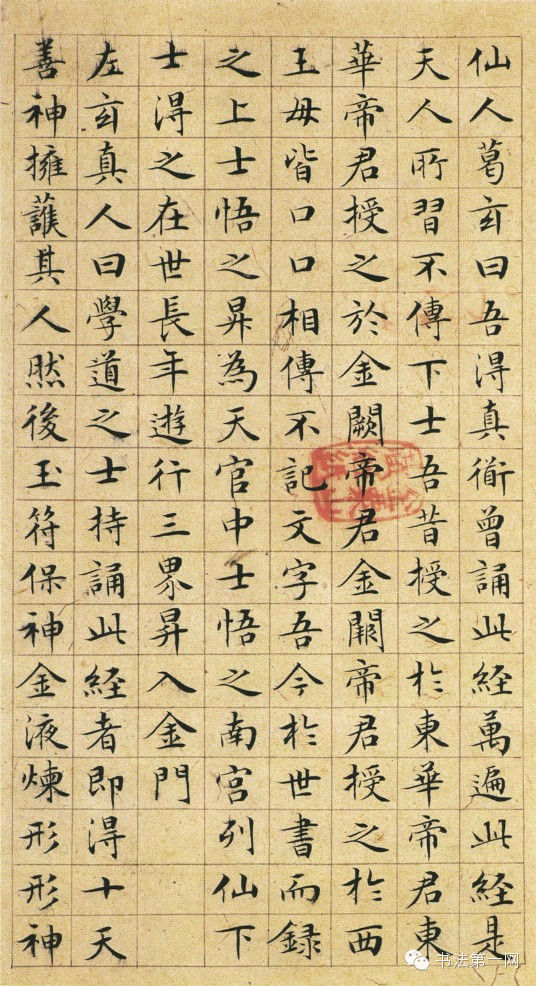 仙人葛玄曰吾得真衜曾誦此経萬遍此経是
天人所習不傳下士吾昔授之於東華帝君東
華帝君授之於金闕帝君金闕帝君授之於西
王母皆口口相傳不記文字吾今於世書而録
之上士悟之昇為天官中士悟之南宮列仙下
士得之在世長年遊行三界昇入金門
左玄真人曰學道之士持誦此経者即得十天
善神擁護其人然後玉符保神金液煉形形神
书法第一网